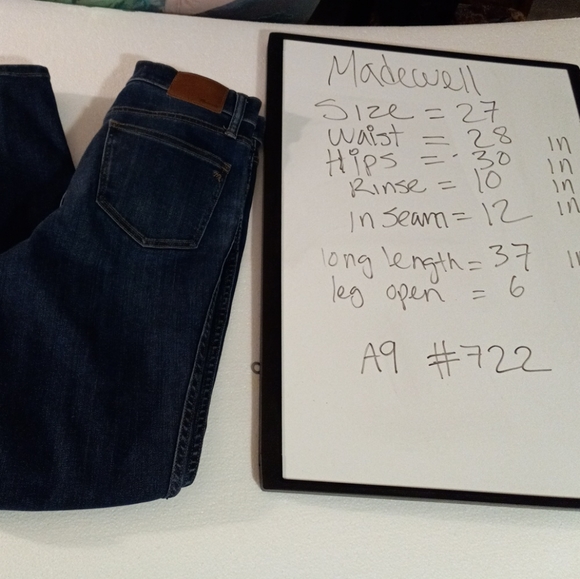 Madewell
Size = 27
Waist = 28 In
Hips = 30 In
Rinse = 10 In
In seam = 12 In
long length = 37 In
leg open = 6
A9 #722